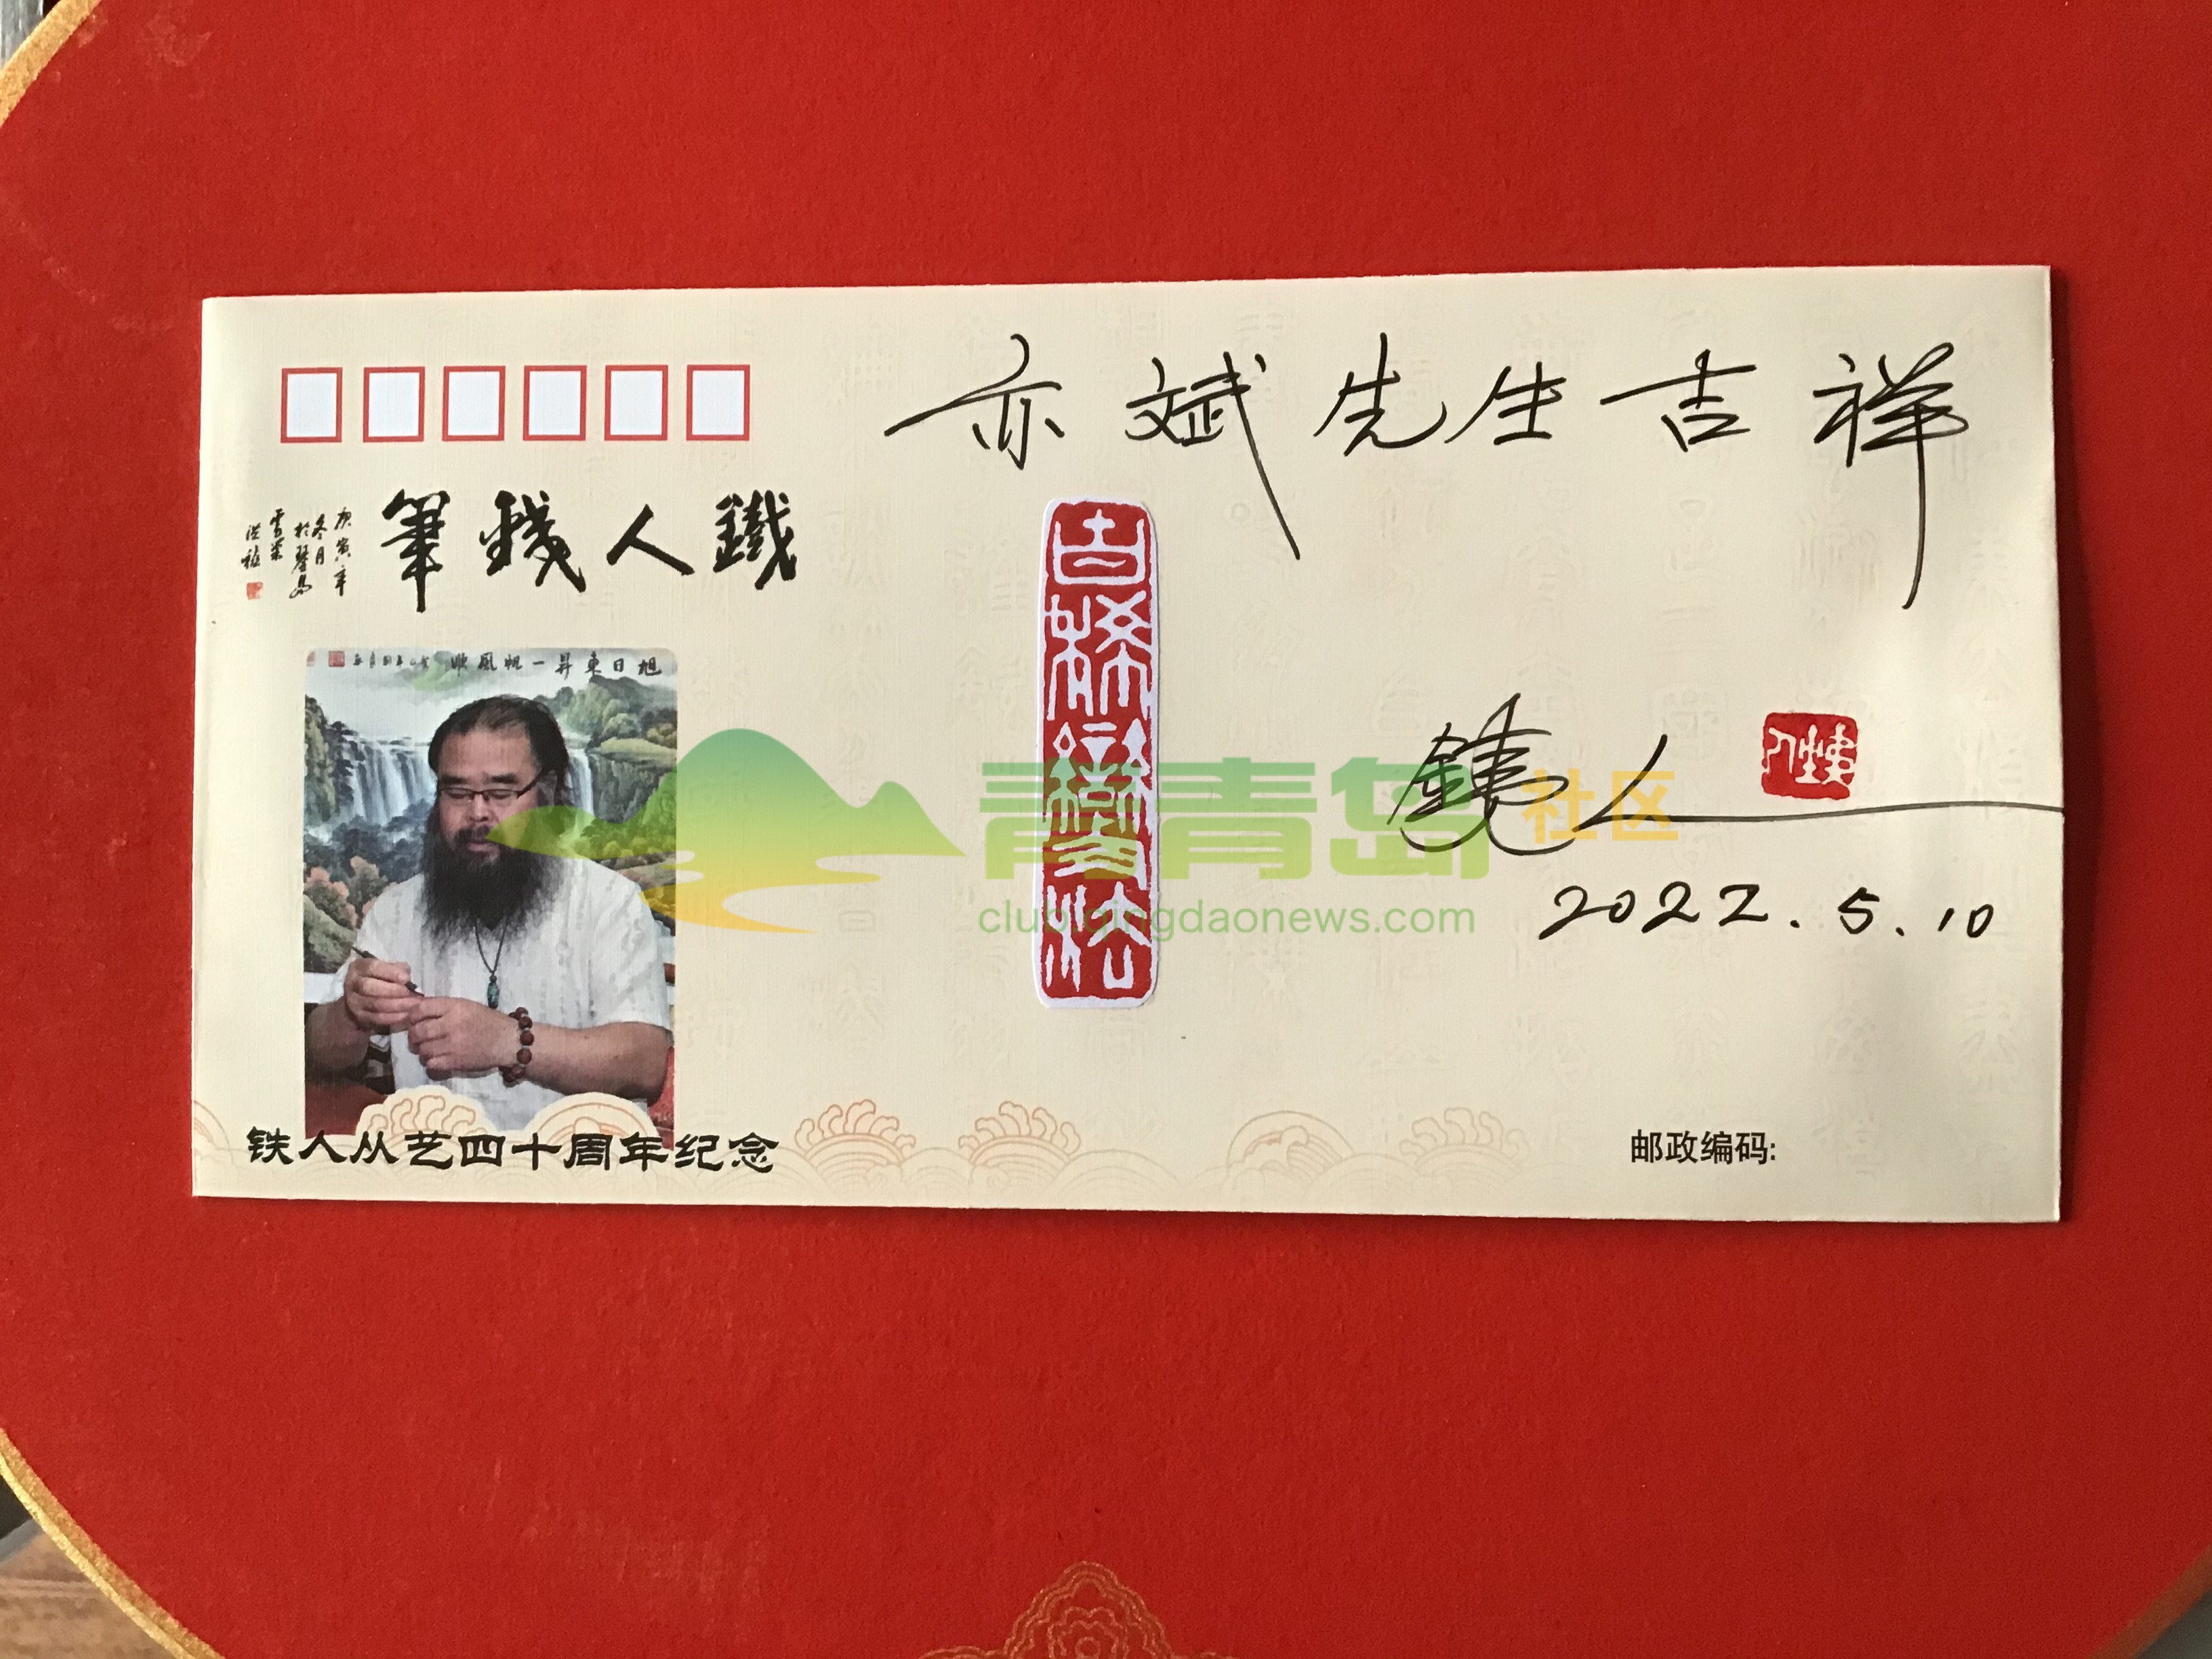 亦斌先生吉祥
筆錢人鐵
庚寅年
冬月
於琴島
旭日東昇一帆風順
古稀學法
鐵人
2022.5.10
青青岛社区
club.qingdaonews.com
铁人从艺四十周年纪念
邮政编码: